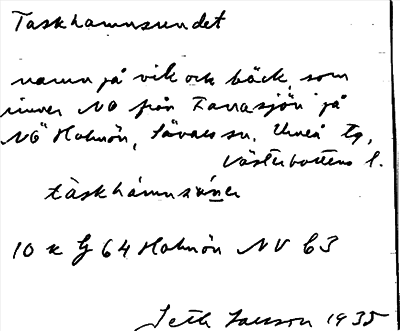 Taskhamnsundet
namn på vik och bäck, som
rinner NO från Tarrasjön på
NÖ Holmön, Sävars sn. Umeå tg,
Västerbottens l.
10 x G 64 Holmön NV 63
Seth Larsson 1935